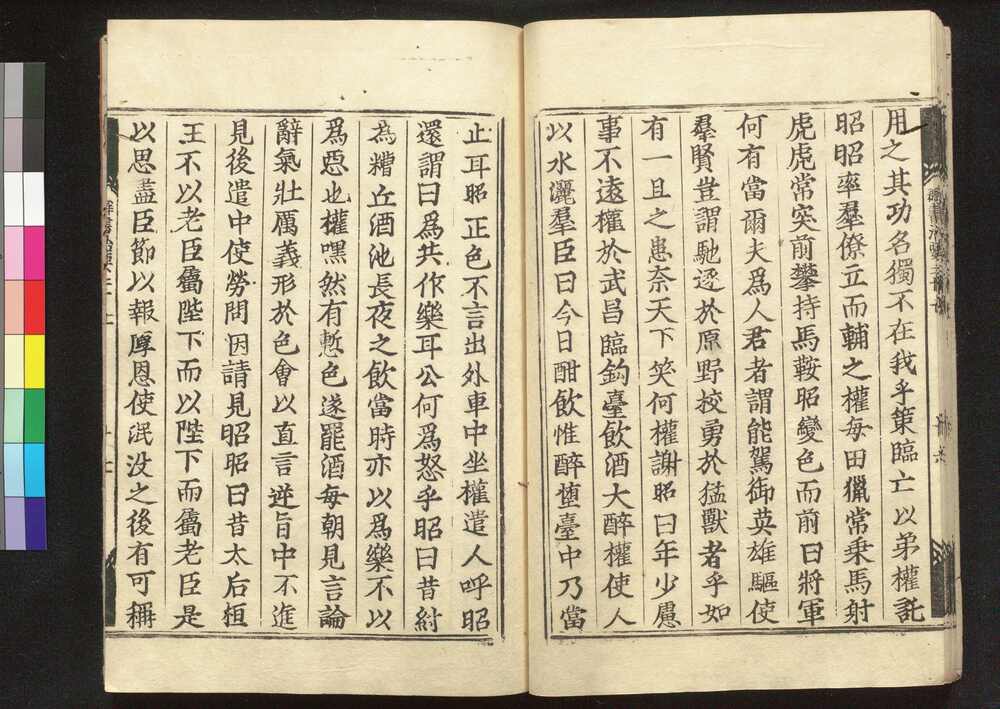 用之其功名獨不在我乎策臨亡以弟權託
昭昭率羣僚立而輔之權每田獵常乗馬射
虎虎常突前攀持馬鞍昭變色而前曰將軍
何有當爾夫爲人君者謂能駕御英雄驅使
羣賢豈謂馳逐於原野挍勇於猛獸者乎如
有一旦之患奈天下笑何權謝昭曰年少慮
事不遠權於武昌臨釣臺飲酒大醉權使人
以水灑羣臣曰今日酣飲惟醉墮臺中乃當
止耳昭正色不言出外車中坐權遣人呼昭
還謂曰爲共作樂耳公何爲怒乎昭曰昔紂
為糟丘酒池長夜之飲當時亦以爲樂不以
爲惡也權嘿然有慙色遂罷酒每朝見言論
辭氣壯厲義形於色會以直言逆旨中不進
見後遣中使勞問因請見昭昭曰昔太后桓
王不以老臣屬陛下而以陛下而屬老臣是
以思盡臣節以報厚恩使泯没之後有可稱